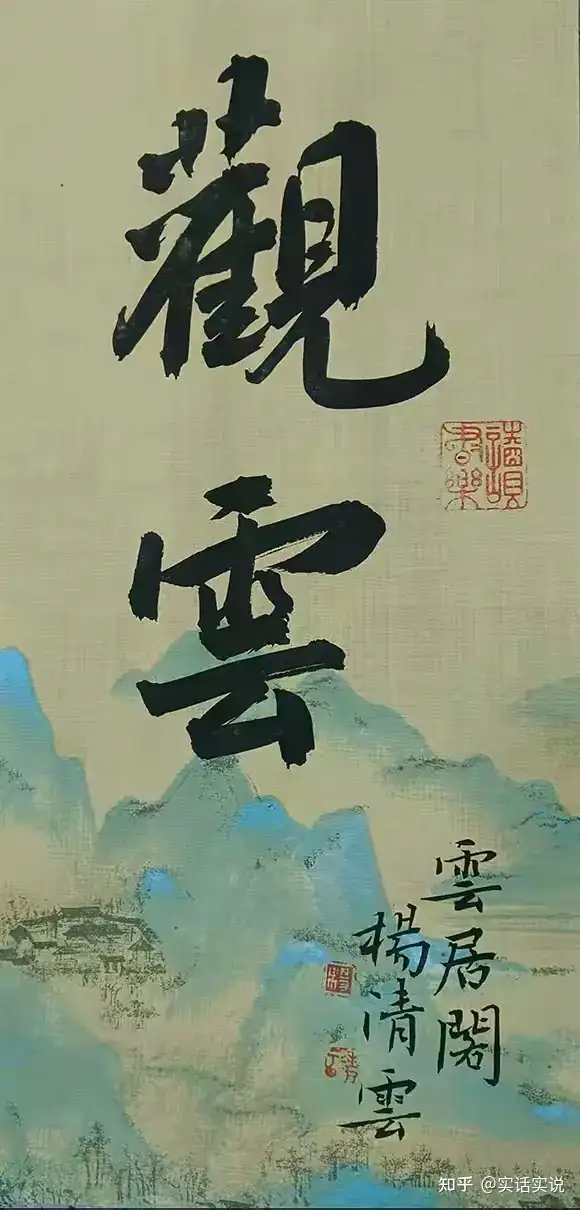 觀雲
雲居閣
楊清雲
知乎 @实话实说